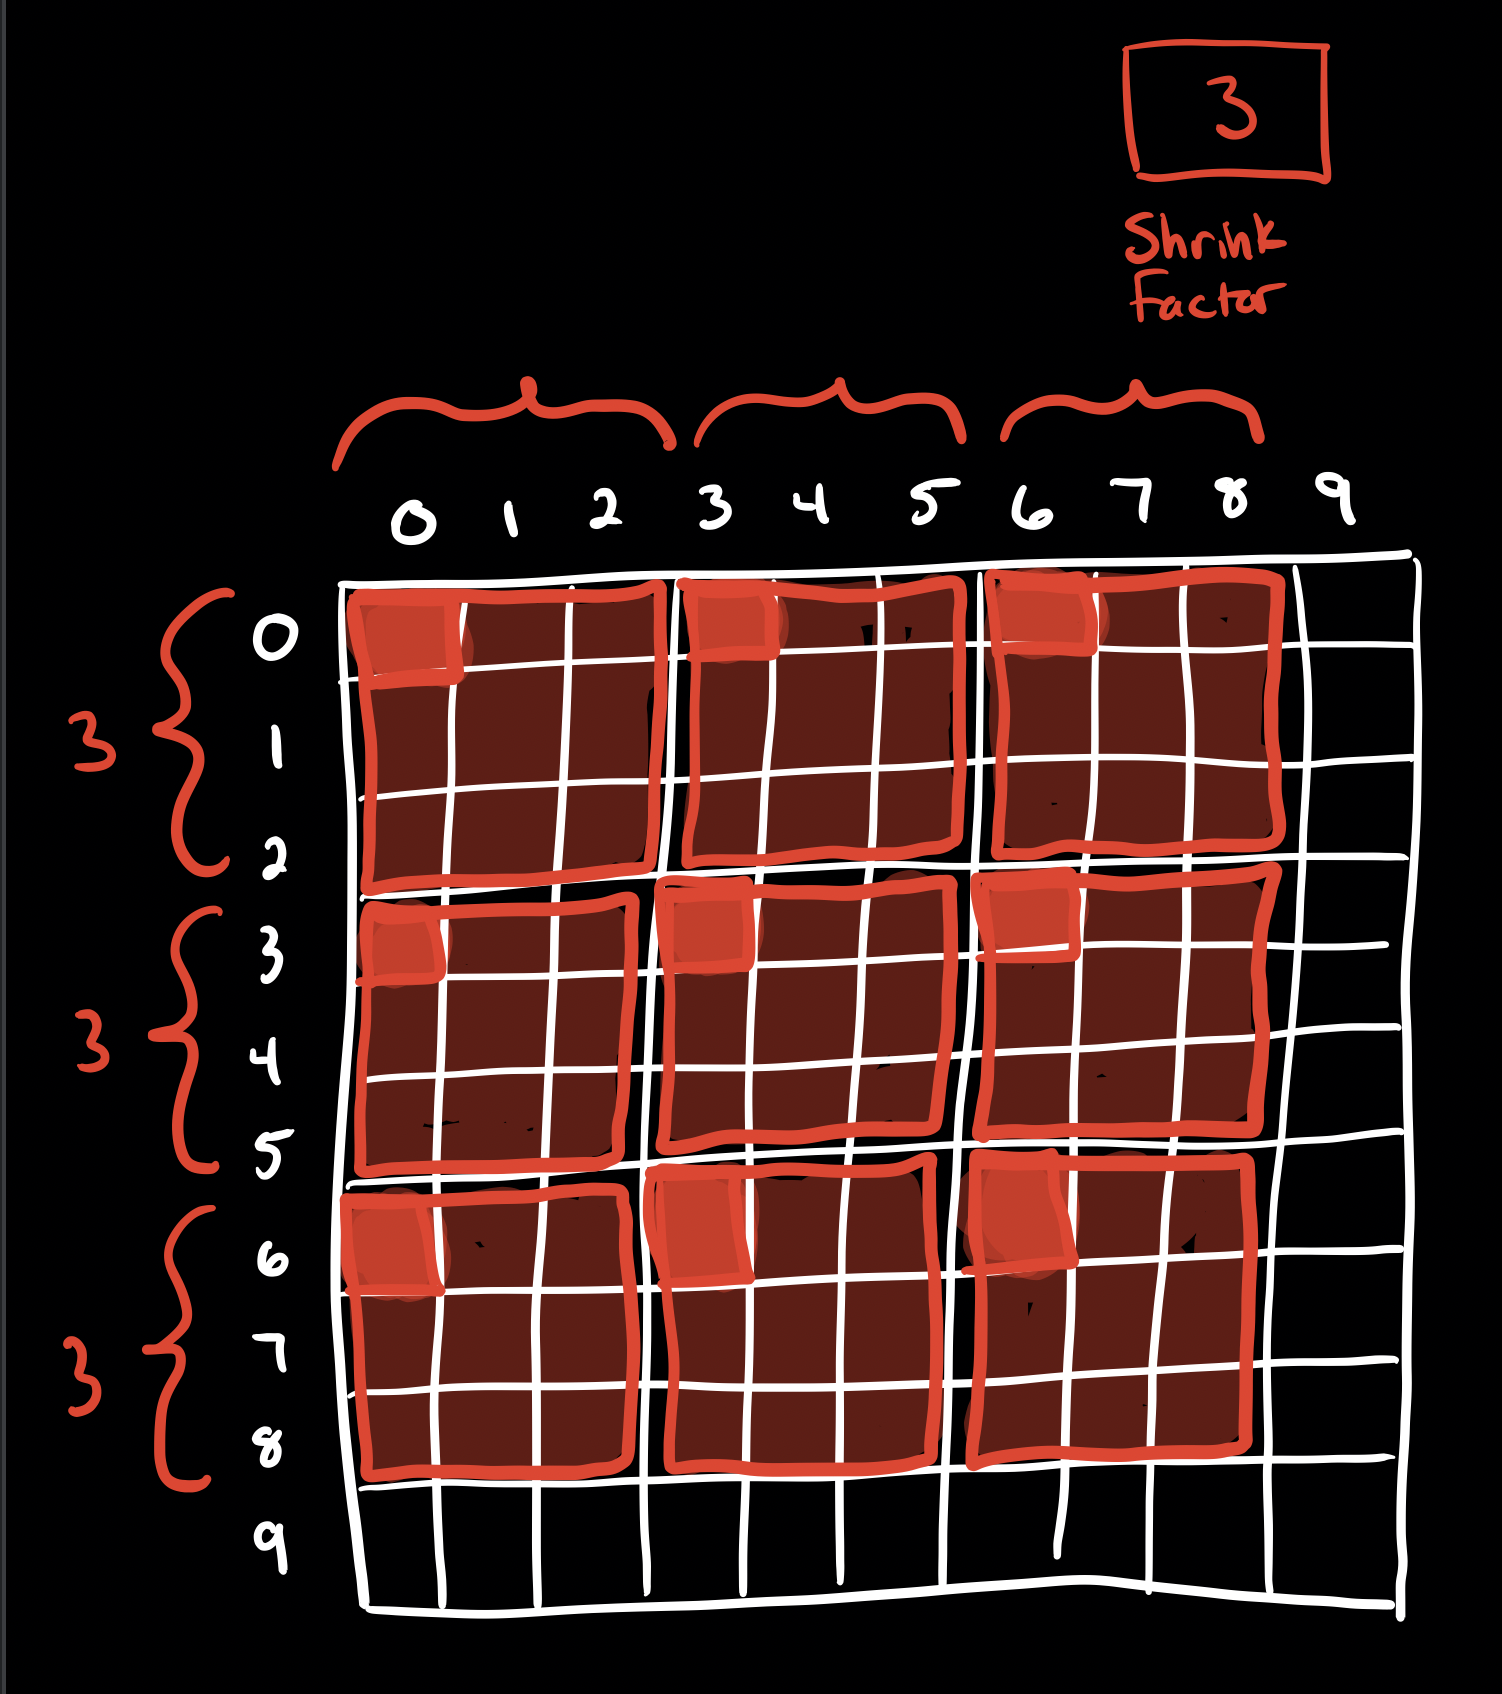 3
Shrink
Factor
0 1 2 3 4 5 6 7 8 9
0
3
1
2
3
3
4
5
6
3
7
8
9